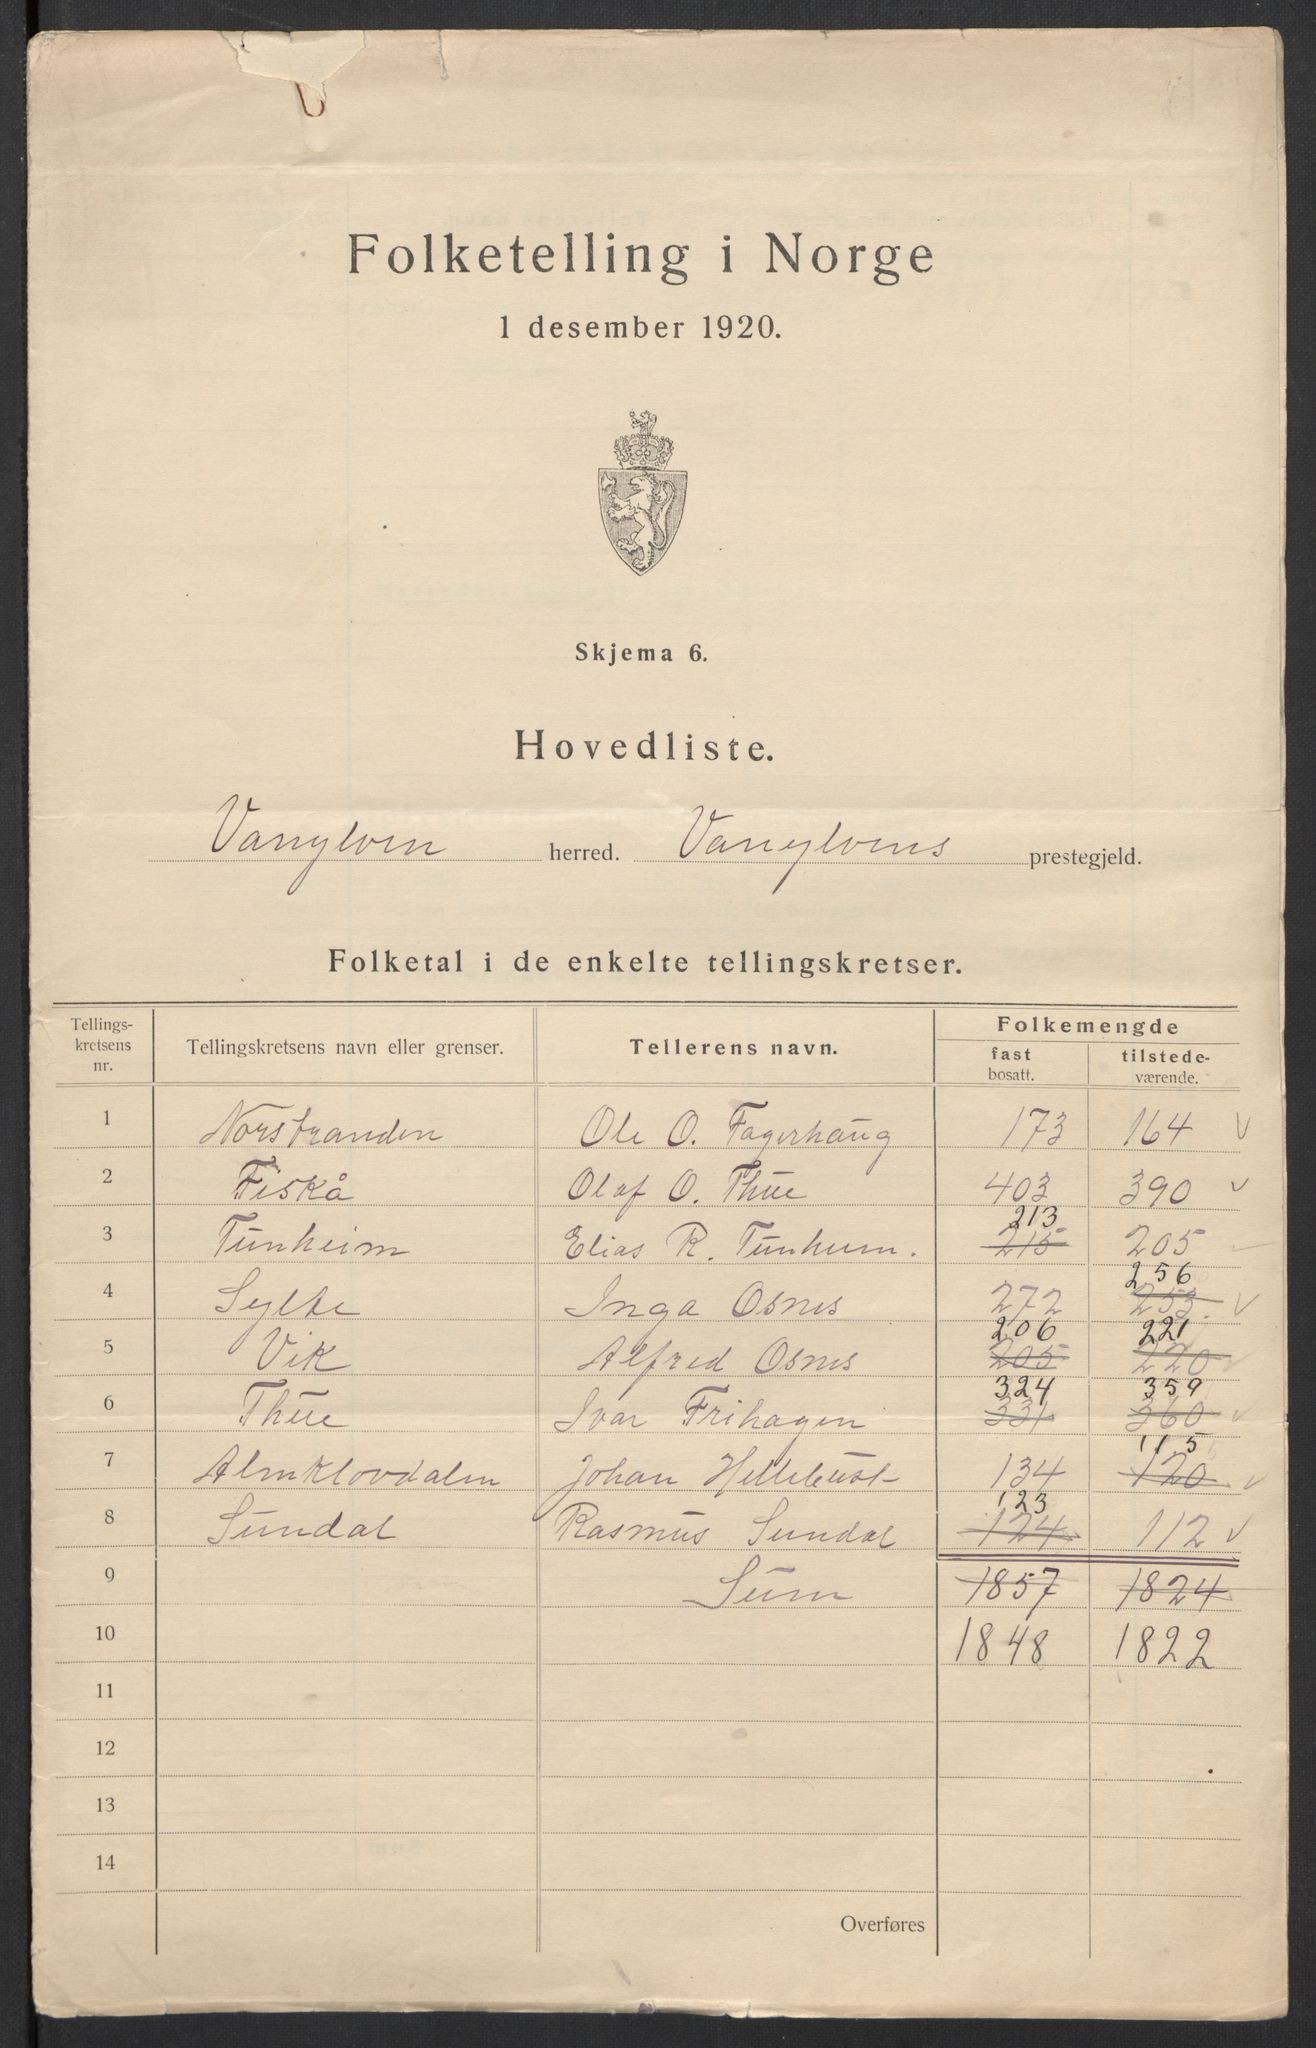 Folketelling i Norge
1 desember 1920.
Skjema 6.
Hovedliste.
Vanylven herred. Vanylvens prestegjeld.
Folketal i de enkelte tellingskretser.
Tellings-kretsens nr. Tellingskretsens navn eller grenser. Tellerens navn. Folkemengde
fast bosatt. tilstede-værende.
1 Norstranden Ole O. Fagerhaug 173 164 v
2 Fiskå Olaf O. Thue 403 390 v
213
3 Tunheim Elias R. Tunheim. 215 205
256
4 Sylte Inga Osnes 272 253. v
206 221
5 Vik Alfred Osnes 205 220 v
324 359
6 Thue Ivar Frihagen 331 360 v
115
7 Almklovdalen Johan Hellebust 134 120 v
123
8 Sundal Rasmus Sundal 124 112 v
9 Sum 1857 1824
10 1848 1822
11
12
13
14
Overføres